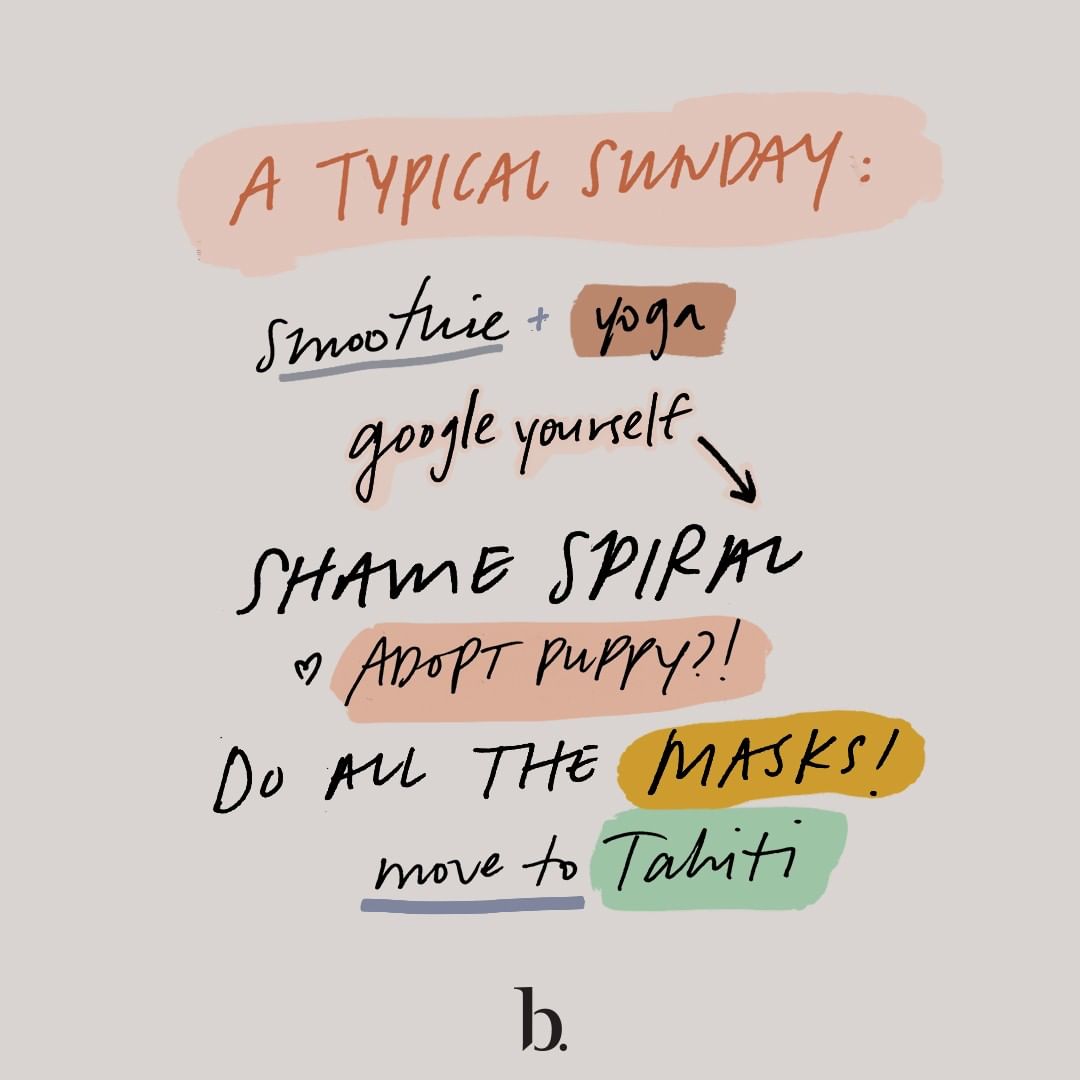 A TYPICAL SUNDAY:
smoothie + yoga
google yourself
SHAME SPIRAL
ADOPT PUPPY?!
DO ALL THE MASKS!
move to Tahiti
b.